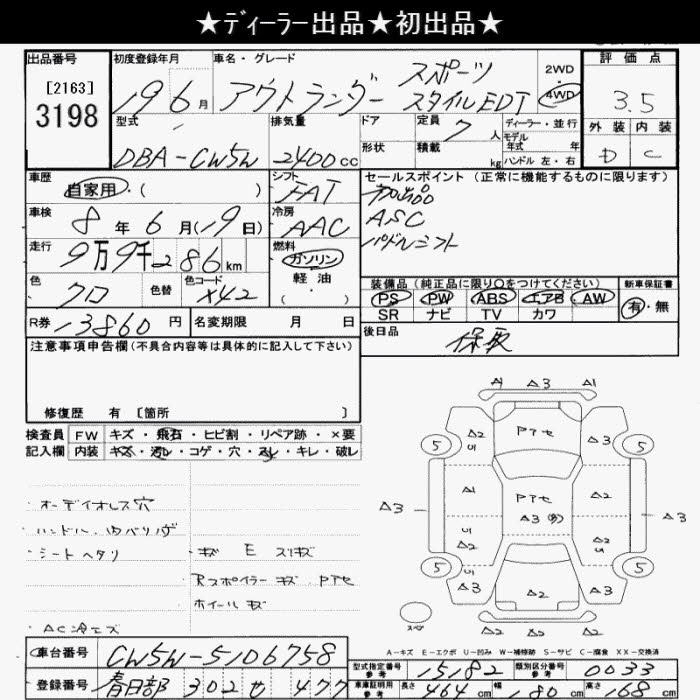 ★ディーラー出品★初出品★
出品番号
[2163]
3198
初度登録年月
19 6月
車名・グレード
アウトランダー スポーツ
スタイルEDT
2WD
4WD
評価点
3.5
外装 内装
D C
型式
DBA-CW5W
排気量
2400cc
ドア
形状
定員 7人
積載 kg
ディーラー・並行
モデル
年式 年
ハンドル 左・右
車歴
自家用・( )
シフト
FAT
セールスポイント (正常に機能するものに限ります)
初出品
ASC
パドルシフト
車検
8年6月(19日)
冷房
AAC
走行
9万9千286km
燃料
ガソリン
軽油
( )
色
クロ
色替
色コード
X42
装備品 (純正品に限り○をつけてください)
PS PW ABS エアB AW
SR ナビ TV カワ
新車保証書
有・無
R券 13860円
名変期限 月 日
後日品
保取
注意事項申告欄(不具合内容等は具体的に記入して下さい)
修復歴 有 〔箇所 〕
検査員 FW キズ・飛石・ヒビ割・リペア跡・×要
記入欄 内装 キズ・汚レ・コゲ・穴・スレ・キレ・破レ
オーディオレス穴
シートヘタリ
キズ E スリキズ
Rスポイラー キズ PTセ
ホイールキズ
A1 △3 A1
5 △2 U1 PTセ △3 5
A1 PTセ △2
△3 U1 △2 △3(分) △2 U1 △3
5 U1 △3 △2 △3 5
△2 △2 △2
スペア
A-キズ E-エクボ U-凹み W-補修跡 S-サビ C-腐食 XX-交換済
車台番号 CW5W-5106758
登録番号 春日部 302 せ 477
型式指定番号 参考 15182
類別区分番号 参考 0033
車庫証明用 参考 長さ 464cm 幅 180cm 高さ 168cm